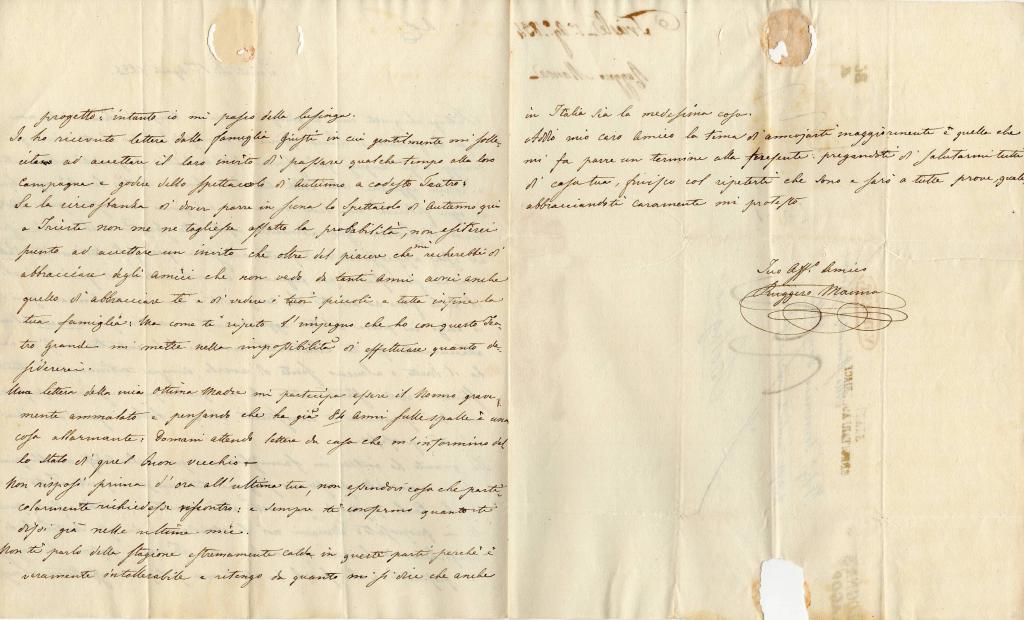 progetto: intanto io mi pasco della lusinga.
Io ho ricevuto lettera dalla famiglia Giusti in cui gentilmente mi solle-
citano ad accettare il loro invito di passare qualche tempo alla loro
Campagna e godere dello spettacolo d'Autunno a codesto Teatro:
Se la circostanza di dover porre in scena lo Spettacolo d'Autunno qui
a Trieste non me ne togliesse affatto la probabilità, non esiterei
punto ad accettare un invito che oltre del piacere che mi recherebbe di
abbracciare degli amici che non vedo da tanti anni avrei anche
quello di abbracciare te e di vedere i tuoi piccoli e tutta infine la
tua famiglia: Ma come ti ripeto l'impegno che ho con questo Tea-
tro Grande mi mette nella impossibilità di effettuare quanto de-
sidererei.
Una lettera della mia ottima Madre mi participa essere il Nonno grave-
mente ammalato e pensando che ha già 84 Anni sulle spalle è una
cosa allarmante: Domani attendo lettere da casa che m'informino del
lo stato di quel buon vecchio
Non risposi prima d'ora all'ultima tua, non essendovi cosa che parti-
colarmente richiedesse riscontro: e sempre ti confermo quanto ti
dissi già nelle ultime mie.
Non ti parlo della stagione estremamente calda in queste parti perchè è
veramente intollerabile e ritengo da quanto mi si dice che anche
in Italia sia la medesima cosa.
Addio mio caro Amico la tema di annojarti maggiormente è quella che
mi fa porre un termine alla presente: pregandoti di salutarmi tutti
di casa tua, finisco col ripeterti che sono e sarò a tutte prove, quale
abbracciandoti caramente mi protesto
Tuo Aff.º Amico
Ruggero Manna